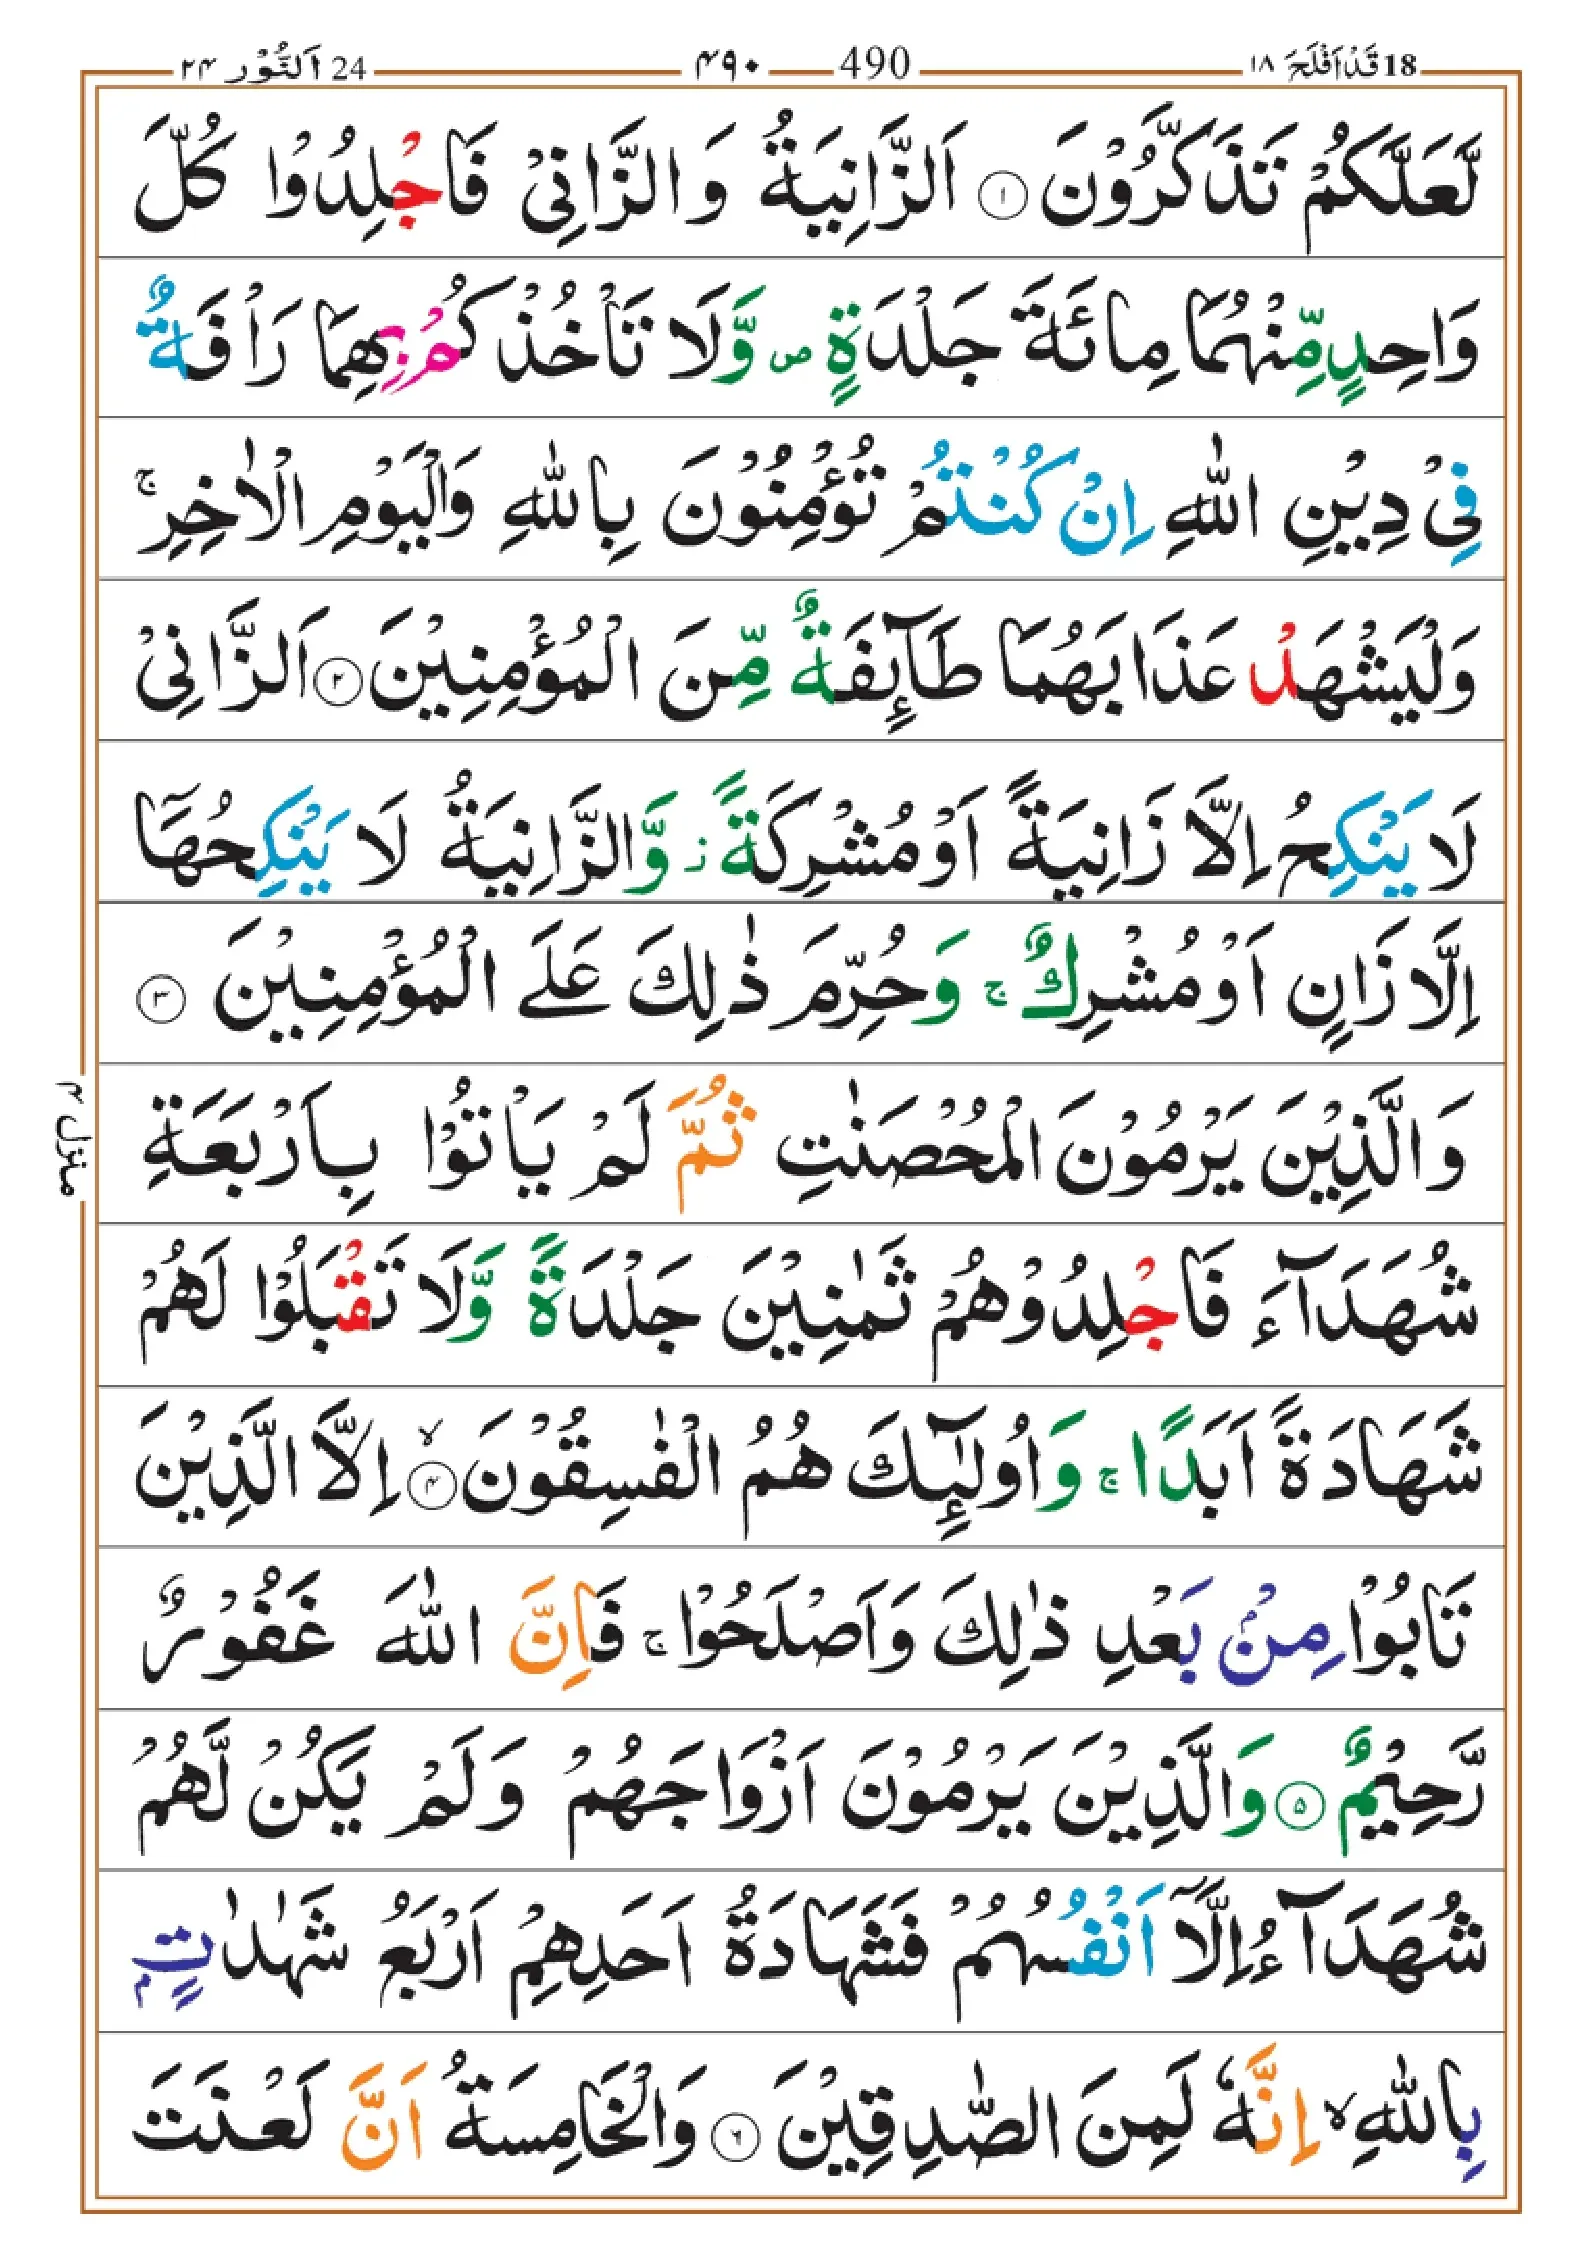 18 قَدْ اَفْلَحَ ۱۸ 490 ۴۹۰ 24 اَلنُّوْر ۲۴
لَّعَلَّكُمْ تَذَكَّرُوْنَ ۝۱ اَلزَّانِيَةُ وَالزَّانِيْ فَاجْلِدُوْا كُلَّ
وَاحِدٍ مِّنْهُمَا مِائَةَ جَلْدَةٍ ص وَّلَا تَاْخُذْكُمْ بِهِمَا رَاْفَةٌ
فِيْ دِيْنِ اللّٰهِ اِنْ كُنْتُمْ تُؤْمِنُوْنَ بِاللّٰهِ وَالْيَوْمِ الْاٰخِرِ ۚ
وَلْيَشْهَدْ عَذَابَهُمَا طَآئِفَةٌ مِّنَ الْمُؤْمِنِيْنَ ۝۲ اَلزَّانِيْ
لَا يَنْكِحُ اِلَّا زَانِيَةً اَوْ مُشْرِكَةً ز وَّالزَّانِيَةُ لَا يَنْكِحُهَاۤ
اِلَّا زَانٍ اَوْ مُشْرِكٌ ۚ وَحُرِّمَ ذٰلِكَ عَلَى الْمُؤْمِنِيْنَ ۝۳
وَالَّذِيْنَ يَرْمُوْنَ الْمُحْصَنٰتِ ثُمَّ لَمْ يَاْتُوْا بِاَرْبَعَةِ
شُهَدَآءَ فَاجْلِدُوْهُمْ ثَمٰنِيْنَ جَلْدَةً وَّلَا تَقْبَلُوْا لَهُمْ
شَهَادَةً اَبَدًا ۚ وَاُولٰٓئِكَ هُمُ الْفٰسِقُوْنَ ۙ۝۴ اِلَّا الَّذِيْنَ
تَابُوْا مِنْۢ بَعْدِ ذٰلِكَ وَاَصْلَحُوْا ۚ فَاِنَّ اللّٰهَ غَفُوْرٌ
رَّحِيْمٌ ۝۵ وَالَّذِيْنَ يَرْمُوْنَ اَزْوَاجَهُمْ وَلَمْ يَكُنْ لَّهُمْ
شُهَدَآءُ اِلَّاۤ اَنْفُسُهُمْ فَشَهَادَةُ اَحَدِهِمْ اَرْبَعُ شَهٰدٰتٍۭ
بِاللّٰهِ ۙ اِنَّهٗ لَمِنَ الصّٰدِقِيْنَ ۝۶ وَالْخَامِسَةُ اَنَّ لَعْنَتَ
منزل ۴